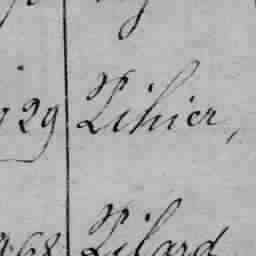 29 Lihier,
68 Lilard